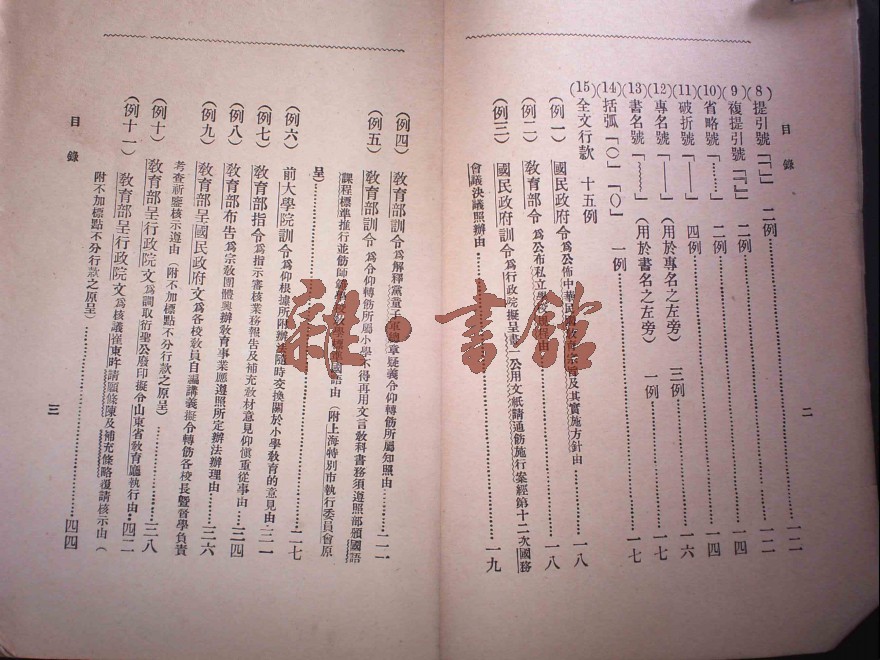 目錄
(8)提引號「「」」二例……一二
(9)複提引號「『』」二例……一四
(10)省略號「……」二例……一四
(11)破折號「——」四例……一六
(12)專名號「——」(用於專名之左旁)三例……一七
(13)書名號「﹏﹏」(用於書名之左旁)一例……一七
(14)括弧「()」「〔〕」一例
(15)全文行款 十五例
(例一)國民政府令爲公佈中華民國教育宗旨及其實施方針由……一八
(例二)教育部令爲公布私立學校規程由……一八
(例三)國民政府訓令爲行政院擬呈畫一公用文紙請通飭施行案經第十二次國務
會議決議照辦由……一九
二
(例四)教育部訓令爲解釋黨童子軍總章疑義令仰轉飭所屬知照由……二一
(例五)教育部訓令爲令仰轉飭所屬小學不得再用文言教科書務須遵照部頒國語
課程標準推行並飭師範學校教學標準國語由(附上海特別市執行委員會原
呈)……二七
(例六)前大學院訓令爲仰根據所附辦法隨時交換關於小學教育的意見由……
(例七)教育部指令爲指示審核業務報告及補充教材意見仰愼重從事由……三二
(例八)教育部布告爲宗教團體興辦教育事業應遵照所定辦法辦理由……三四
(例九)教育部呈國民政府文爲各校教員自編講義擬令轉飭各校長暨督學負責
考查祈鑒核示遵由(附不加標點不分行款之原呈)……三六
(例十)教育部呈行政院文爲調取衍聖公廢印擬令山東省教育廳執行由……三八
(例十一)教育部呈行政院文爲核議崔東昨請願條陳及補充條略覆請核示由(
附不加標點不分行款之原呈)……四四
目錄
三
雜·書館